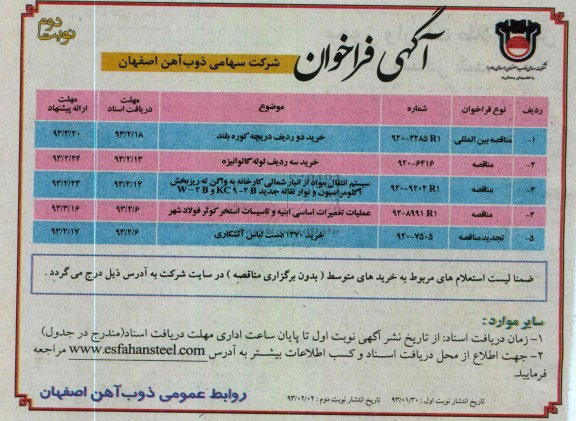 نوبت دوم
آگهی فراخوان
شرکت سهامی ذوب آهن اصفهان
ردیف | نوع فراخوان | شماره | موضوع | مهلت دریافت اسناد | مهلت ارائه پیشنهاد
۱- | مناقصه بین المللی | ۹۲۰-۴۲۸۵ R۱ | خرید دو ردیف دریچه کوره بلند | ۹۳/۲/۱۸ | ۹۳/۳/۲۰
۲- | مناقصه | ۹۲۰-۶۴۱۶ | خرید سه ردیف لوله گالوانیزه | ۹۳/۲/۱۳ | ۹۳/۲/۲۴
۳- | مناقصه | ۹۲۰-۹۲۰۲ R۱ | سیستم انتقال مواد از انبار شمالی کارخانه به واگن ته ریز بخش
آگلومراسیون و نوار نقاله جدید KC۹-۲B و W-۲B | ۹۳/۲/۱۴ | ۹۳/۲/۲۴
۴- | مناقصه | ۹۲۰۸۹۹۱ R۱ | عملیات تعمیرات اساسی ابنیه و تاسیسات استخر کوثر فولاد شهر | ۹۳/۲/۶ | ۹۳/۳/۱۶
۵- | تجدید مناقصه | ۹۲۰-۷۵۰۵ | خرید ۱۳۷۰ دست لباس آتشکاری | ۹۳/۲/۶ | ۹۳/۲/۱۷
ضمنا لیست استعلام های مربوط به خرید های متوسط ( بدون برگزاری مناقصه ) در سایت شرکت به آدرس ذیل درج می گردد .
سایر موارد :
۱- زمان دریافت اسناد: از تاریخ نشر آگهی نوبت اول تا پایان ساعت اداری مهلت دریافت اسناد(مندرج در جدول)
۲- جهت اطلاع از محل دریافت اسناد و کسب اطلاعات بیشتر به آدرس www.esfahansteel.com مراجعه
فرمایید.
تاریخ انتشار نوبت اول : ۹۳/۰۱/۳۰ تاریخ انتشار نوبت دوم : ۹۳/۰۲/۰۲
روابط عمومی ذوب آهن اصفهان